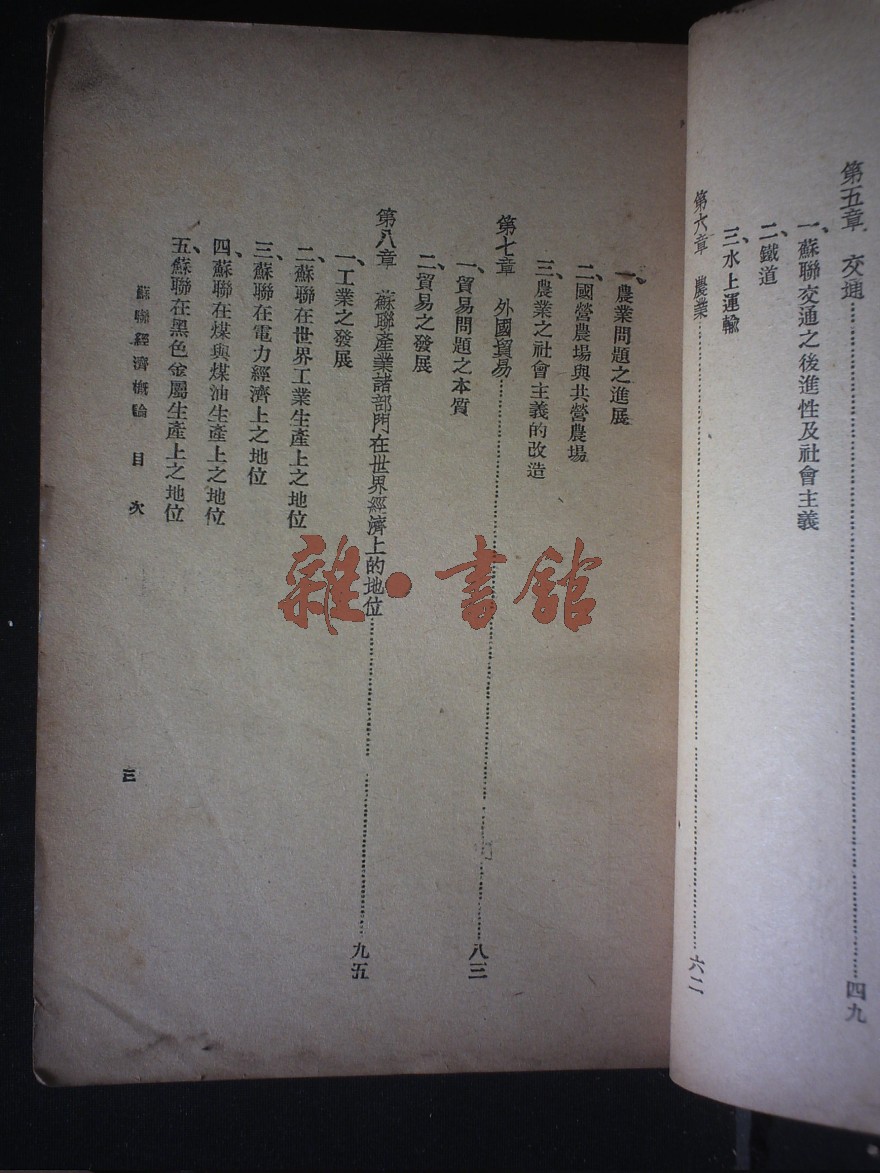 第五章　交通……四九
一、蘇聯交通之後進性及社會主義
二、鐵道
三、水上運輸
第六章　農業……六二
一、農業問題之進展
二、國營農場與共營農場
三、農業之社會主義的改造
第七章　外國貿易……八三
一、貿易問題之本質
二、貿易之發展
第八章　蘇聯產業諸部門在世界經濟上的地位……九五
一、工業之發展
二、蘇聯在世界工業生產上之地位
三、蘇聯在電力經濟上之地位
四、蘇聯在煤與煤油生產上之地位
五、蘇聯在黑色金屬生產上之地位
蘇聯經濟概論　目次
三
雜·書館